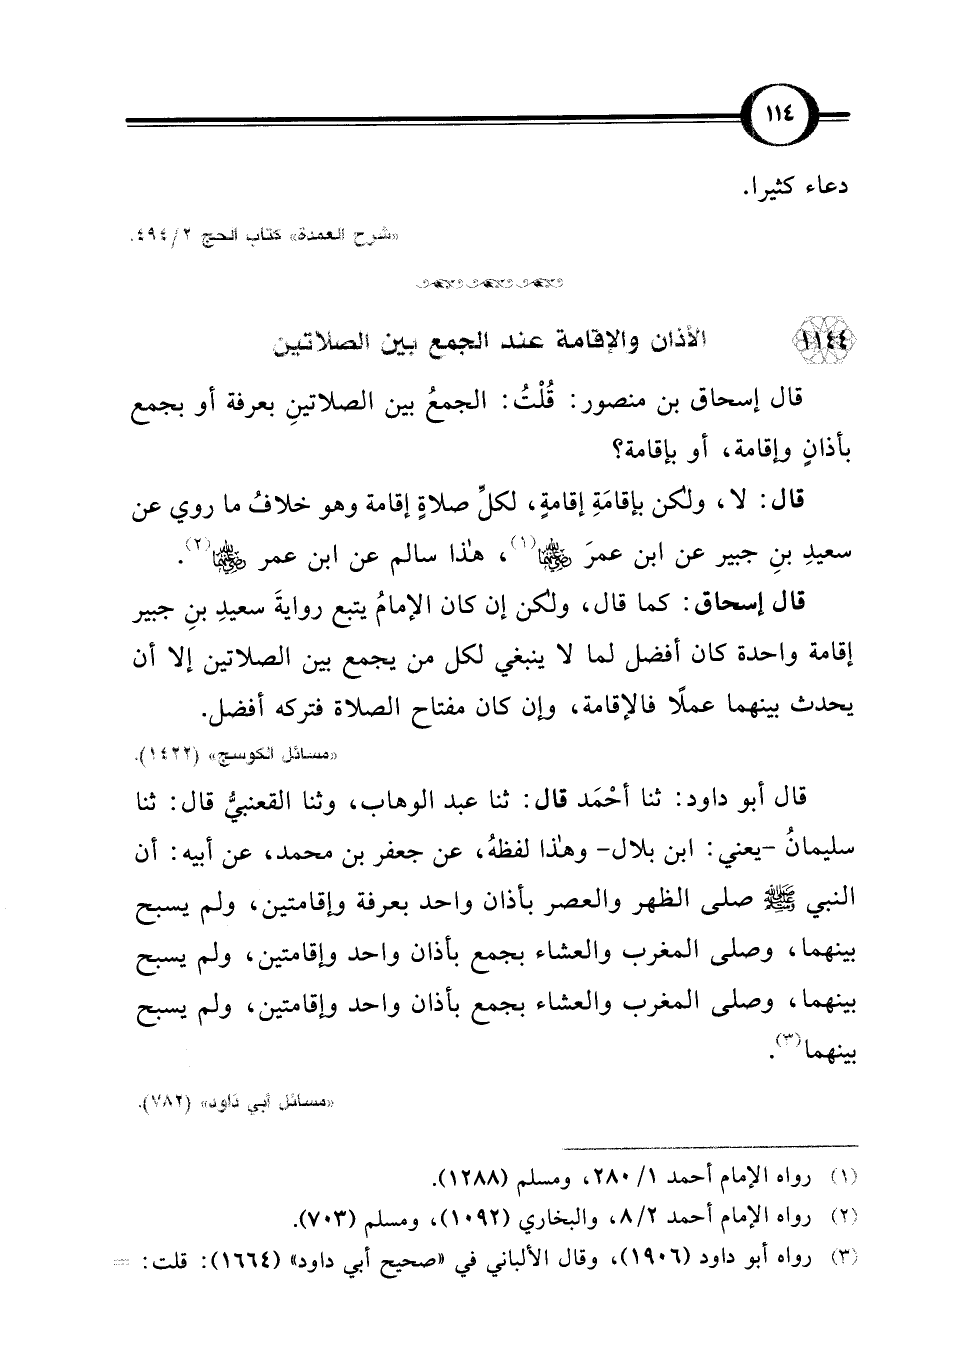 ١١٤
دعاء كثيرا.
«شرح العمدة» كتاب الحج ٢/ ٤٩٤.
١١٤٤ الأذان والإقامة عند الجمع بين الصلاتين
قال إسحاق بن منصور: قُلْتُ: الجمعُ بين الصلاتينِ بعرفة أو بجمع
بأذانٍ وإقامة، أو بإقامة؟
قال: لا، ولكن بإقامَةِ إقامةٍ، لكلِّ صلاةٍ إقامة وهو خلافُ ما روي عن
سعيدِ بنِ جبير عن ابن عمرَ رضي الله عنهما(١)، هذا سالم عن ابن عمر رضي الله عنهما(٢).
قال إسحاق: كما قال، ولكن إن كان الإمامُ يتبع روايةَ سعيدِ بنِ جبير
إقامة واحدة كان أفضل لما لا ينبغي لكل من يجمع بين الصلاتين إلا أن
يحدث بينهما عملًا فالإقامة، وإن كان مفتاح الصلاة فتركه أفضل.
«مسائل الكوسج» (١٤٢٢).
قال أبو داود: ثنا أحْمَد قال: ثنا عبد الوهاب، وثنا القعنبيُّ قال: ثنا
سليمانُ -يعني: ابن بلال- وهذا لفظهُ، عن جعفر بن محمد، عن أبيه: أن
النبي ﷺ صلى الظهر والعصر بأذان واحد بعرفة وإقامتين، ولم يسبح
بينهما، وصلى المغرب والعشاء بجمع بأذان واحد وإقامتين، ولم يسبح
بينهما، وصلى المغرب والعشاء بجمع بأذان واحد وإقامتين، ولم يسبح
بينهما(٣).
«مسائل أبي داود» (٧٨٢).
(١) رواه الإمام أحمد ١/ ٢٨٠، ومسلم (١٢٨٨).
(٢) رواه الإمام أحمد ٢/ ٨، والبخاري (١٠٩٢)، ومسلم (٧٠٣).
(٣) رواه أبو داود (١٩٠٦)، وقال الألباني في «صحيح أبي داود» (١٦٦٤): قلت: =